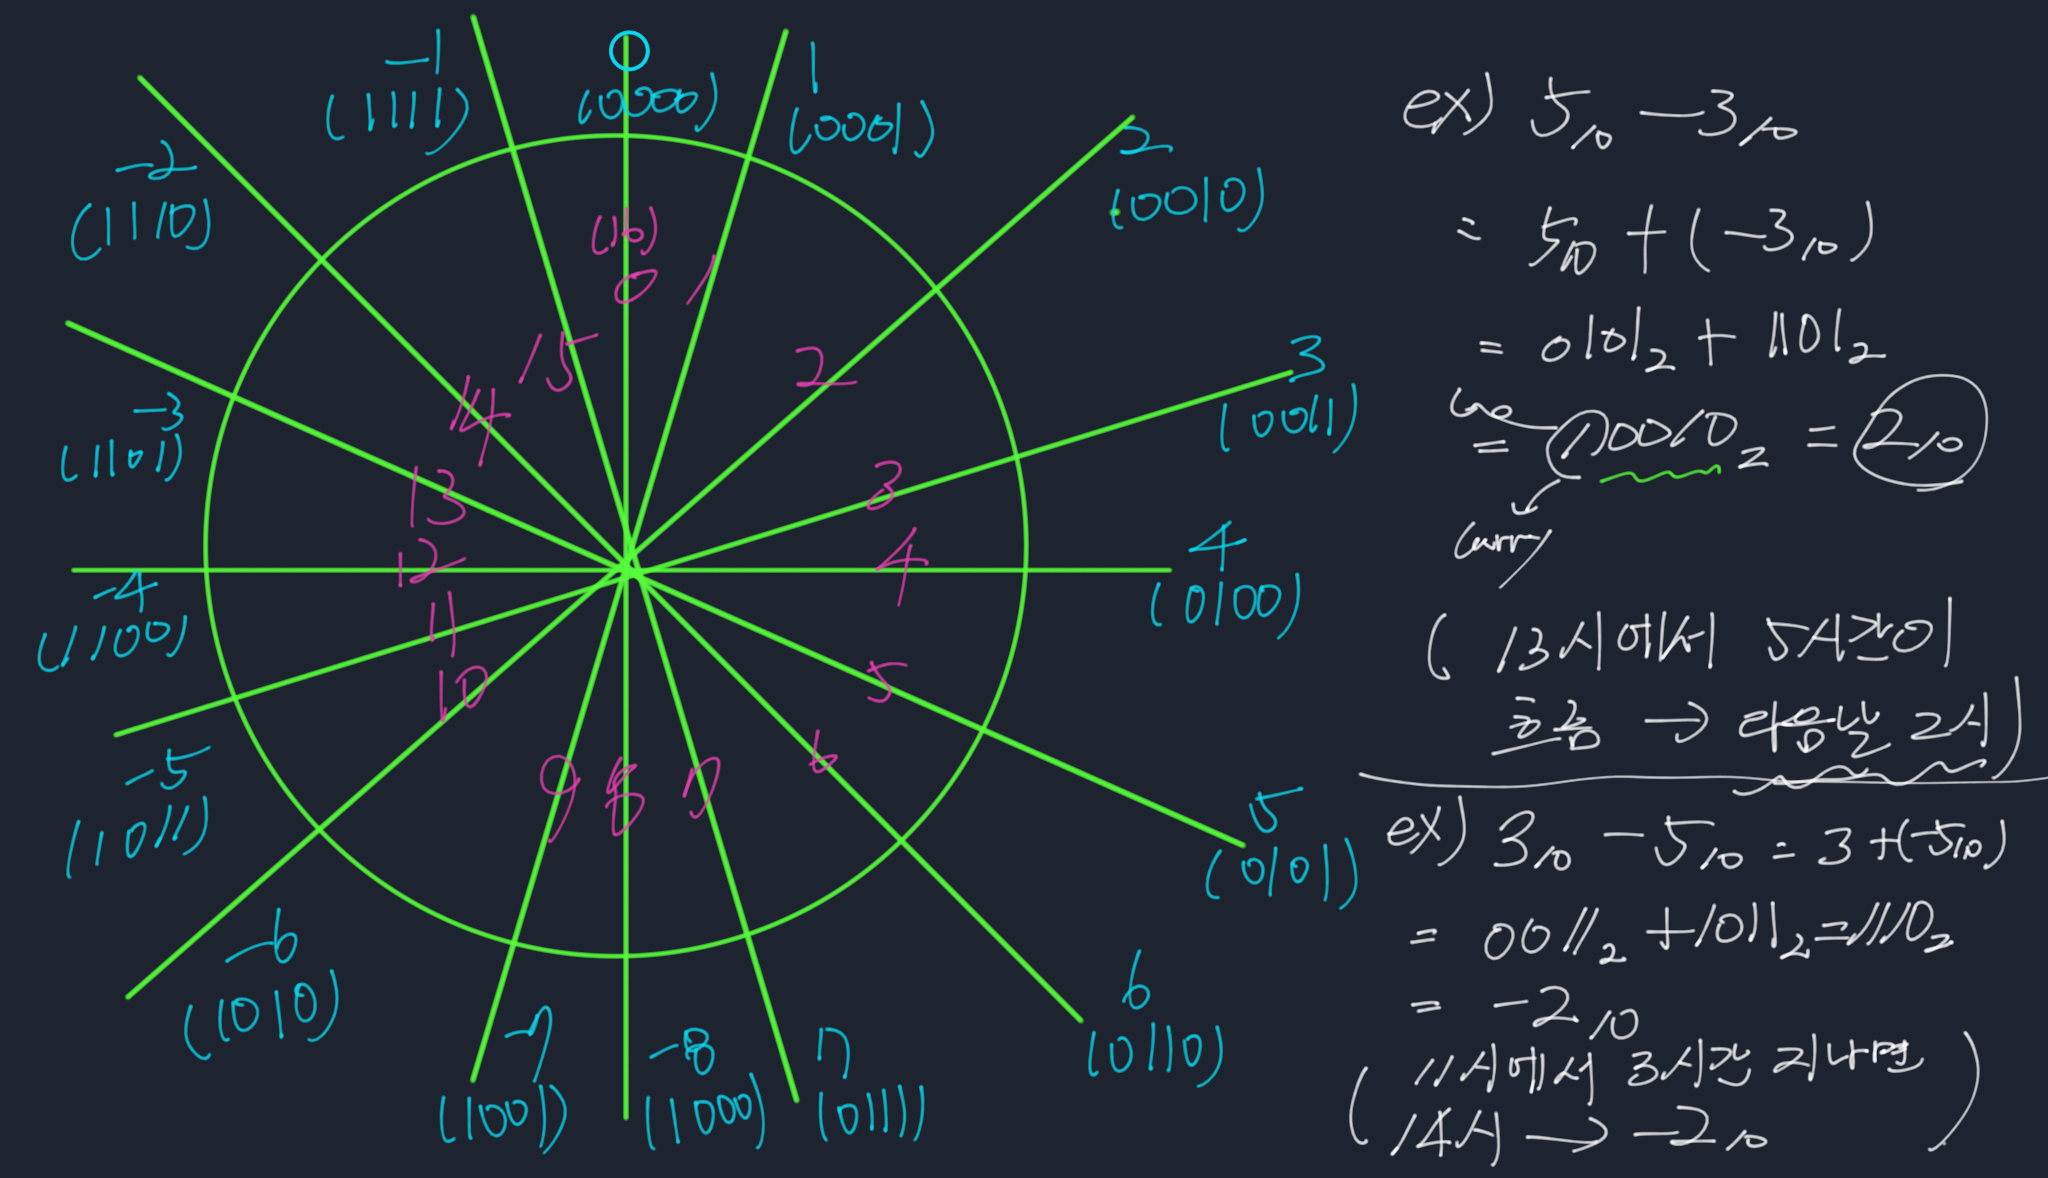 0
(0000)
1
(0001)
2
(0010)
3
(0011)
4
(0100)
5
(0101)
6
(0110)
7
(0111)
-8
(1000)
-7
(1001)
-6
(1010)
-5
(1011)
-4
(1100)
-3
(1101)
-2
(1110)
-1
(1111)
(16)
0
1
2
3
4
5
6
7
8
9
10
11
12
13
14
15
ex) 5₁₀ - 3₁₀
= 5₁₀ + (-3₁₀)
= 0101₂ + 1101₂
= 10010₂ = 2₁₀
carry
( 13시에서 5시간이
흐름 → 다음날 2시)
ex) 3₁₀ - 5₁₀ = 3 + (-5₁₀)
= 0011₂ + 1011₂ = 1110₂
= -2₁₀
( 11시에서 3시간 지나면
14시 → -2₁₀ )